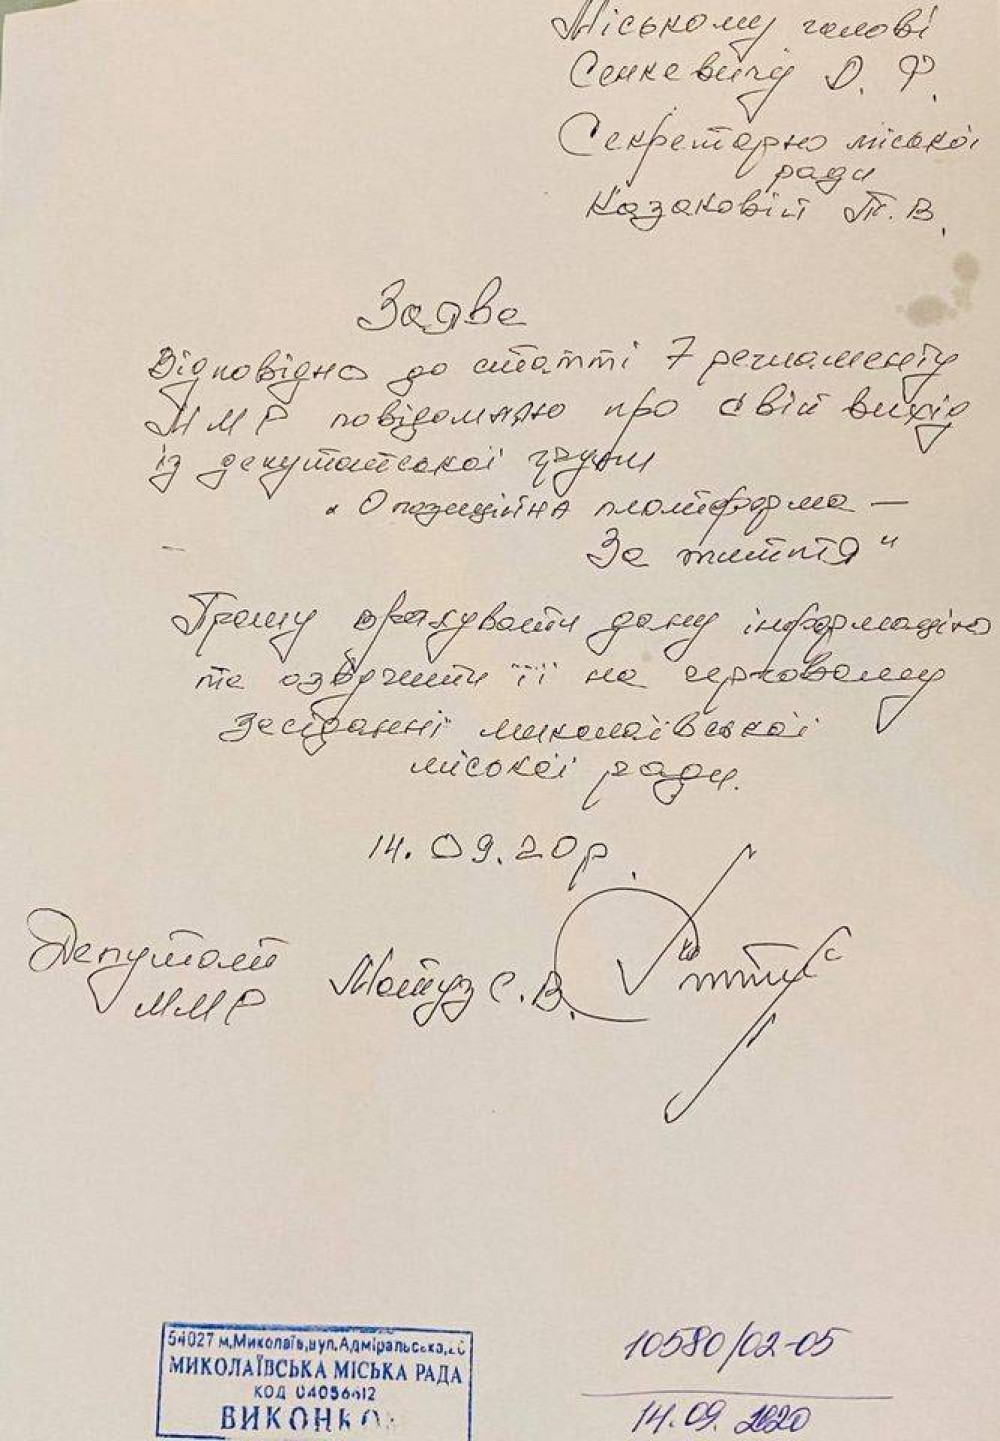 Міському голові
Сенкевичу О. Ф.
Секретарю міської
ради
Казаковій Т. В.
Заява
Відповідно до статті 7 регламенту
ММР повідомляю про свій вихід
із депутатської групи
"Опозиційна платформа –
За життя"
Прошу врахувати дану інформацію
та озвучити її на черговому
засіданні миколаївської
міської ради.
14.09.20р.
Депутат
ММР
Мотуз С. В.
54027 м.Миколаїв,вул.Адміральська,20
МИКОЛАЇВСЬКА МІСЬКА РАДА
КОД 04056612
ВИКОНКО
10580/02-05
14.09.2020